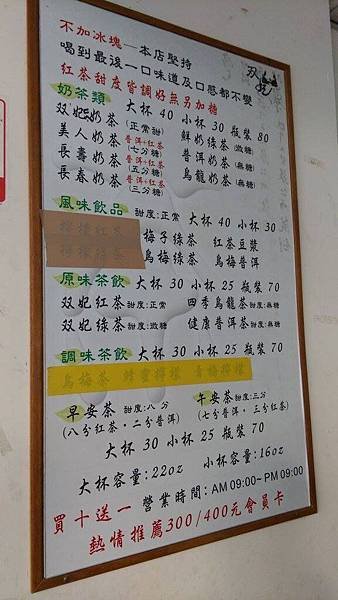 不加冰塊─本店堅持 双妃
喝到最後一口味道及口感都不變
紅茶甜度皆調好無另加糖
奶茶類 大杯 40 小杯 30 瓶裝 80
双妃奶茶(正常甜) 鮮奶綠茶(微糖)
美人奶茶 普洱+紅茶(七分糖) 普洱奶茶(無糖)
長壽奶茶 普洱+紅茶(五分糖) 烏龍奶茶(無糖)
長春奶茶 普洱+紅茶(三分糖)
風味飲品 甜度:正常 大杯 40 小杯 30
檸檬紅茶 梅子綠茶 紅茶豆漿
檸檬綠茶 烏梅綠茶 烏梅普洱
原味茶飲 大杯 30 小杯 25 瓶裝 70
双妃紅茶 甜度:正常 四季烏龍茶 甜度:無糖
双妃綠茶 甜度:微糖 健康普洱茶 甜度:無糖
調味茶飲 大杯 30 小杯 25 瓶裝 70
烏梅茶 蜂蜜檸檬 青梅檸檬
早安茶 甜度:八分 午安茶 甜度:三分
(八分紅茶,二分普洱) (七分普洱,三分紅茶)
大杯 30 小杯 25 瓶裝 70
大杯容量:22oz 小杯容量:16oz
買十送一 營業時間:AM 09:00~ PM 09:00
熱情推薦300/400元會員卡